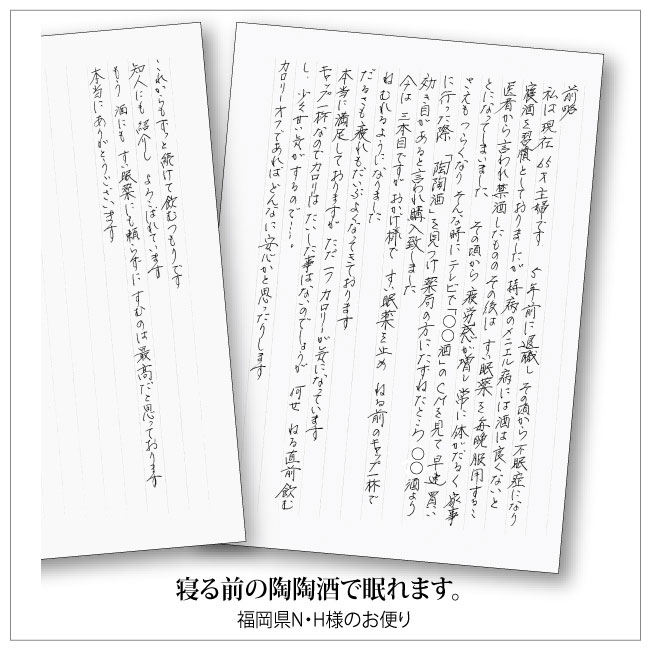 前略
私は現在65才主婦です 5年前に退職し その頃から不眠症になり
寝酒を習慣としておりましたが 持病のメニエル病には酒は良くないと
医者から言われ禁酒したものの その後は すい眠薬を毎晩服用するこ
とになってしまいました その頃から 疲労感が増し 常に体がだるく 家事
さえもつらくなり そんな時にテレビで「〇〇酒」のCMを見て 早速 買い
に行った際 「陶陶酒」を見つけ 薬局の方にたずねたところ 〇〇酒より
効き目があると言われ購入致しました
今は 三本目ですが おかげ様で すい眠薬を止め ねる前のキャップ一杯で
ねむれるようになりました
だるさも疲れもだいぶよくなってきております
本当に満足しておりますが ただ一つ カロリーが気になっています
キャップ一杯なのでカロリーは たいした事はないのでしょうが 何せ ねる直前 飲む
し 少々甘い気がするので・・・。
カロリーオフであればどんなに安心かと思ったりします
これからもずっと続けて飲むつもりです
知人にも紹介し よろこばれています
もう 酒にも すい眠薬にも頼らずに すむのは最高だと思っております
本当にありがとうございます
寝る前の陶陶酒で眠れます。
福岡県N・H様のお便り